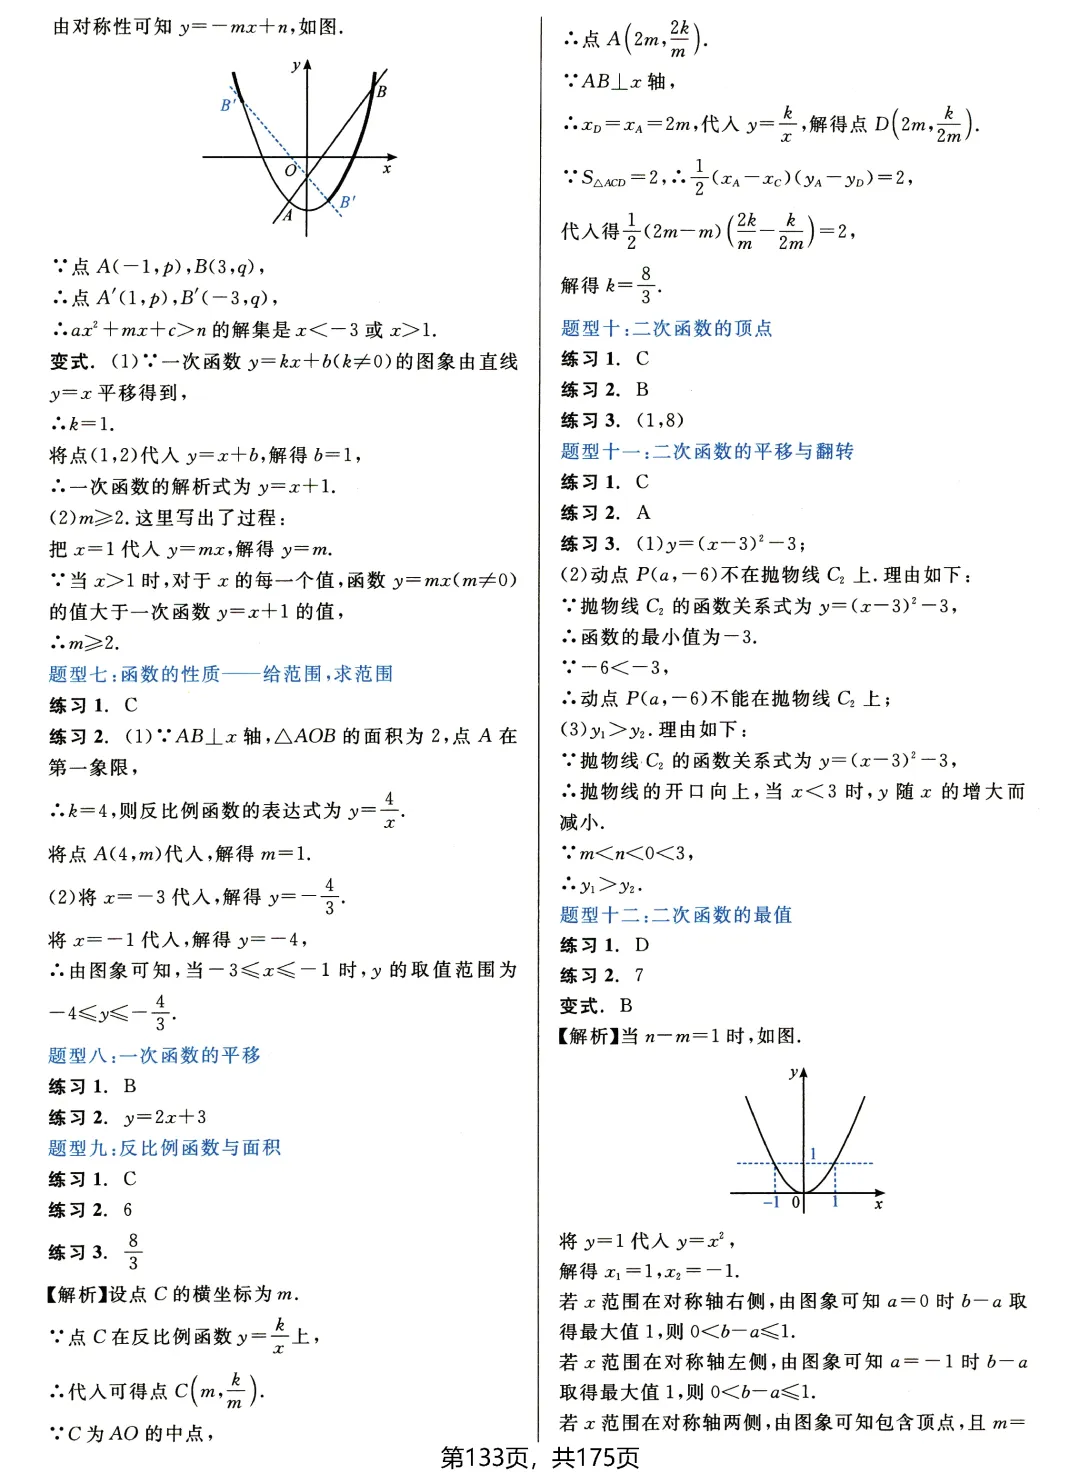 由对称性可知 y=-mx+n,如图.
y
B'
B
O
x
A
B'
∵点 A(-1,p),B(3,q),
∴点 A'(1,p),B'(-3,q),
∴ax²+mx+c>n 的解集是 x<-3 或 x>1.
变式. (1)∵一次函数 y=kx+b(k≠0)的图象由直线
y=x 平移得到,
∴k=1.
将点(1,2)代入 y=x+b,解得 b=1,
∴一次函数的解析式为 y=x+1.
(2)m≥2.这里写出了过程:
把 x=1 代入 y=mx,解得 y=m.
∵当 x>1 时,对于 x 的每一个值,函数 y=mx(m≠0)
的值大于一次函数 y=x+1 的值,
∴m≥2.
题型七:函数的性质——给范围,求范围
练习 1. C
练习 2. (1)∵AB⊥x 轴,△AOB 的面积为 2,点 A 在
第一象限,
∴k=4,则反比例函数的表达式为 y=4/x.
将点 A(4,m)代入,解得 m=1.
(2)将 x=-3 代入,解得 y=-4/3.
将 x=-1 代入,解得 y=-4,
∴由图象可知,当-3≤x≤-1 时,y 的取值范围为
-4≤y≤-4/3.
题型八:一次函数的平移
练习 1. B
练习 2. y=2x+3
题型九:反比例函数与面积
练习 1. C
练习 2. 6
练习 3. 8/3
【解析】设点 C 的横坐标为 m.
∵点 C 在反比例函数 y=k/x 上,
∴代入可得点 C(m,k/m).
∵C 为 AO 的中点,
∴点 A(2m,2k/m).
∵AB⊥x 轴,
∴x_D=x_A=2m,代入 y=k/x,解得点 D(2m,k/2m).
∵S△ACD=2,∴1/2(x_A-x_C)(y_A-y_D)=2,
代入得1/2(2m-m)(2k/m-k/2m)=2,
解得 k=8/3.
题型十:二次函数的顶点
练习 1. C
练习 2. B
练习 3. (1,8)
题型十一:二次函数的平移与翻转
练习 1. C
练习 2. A
练习 3. (1)y=(x-3)²-3;
(2)动点 P(a,-6)不在抛物线 C₂ 上.理由如下:
∵抛物线 C₂ 的函数关系式为 y=(x-3)²-3,
∴函数的最小值为-3.
∵-6<-3,
∴动点 P(a,-6)不能在抛物线 C₂ 上;
(3)y₁>y₂.理由如下:
∵抛物线 C₂ 的函数关系式为 y=(x-3)²-3,
∴抛物线的开口向上,当 x<3 时,y 随 x 的增大而
减小.
∵m<n<0<3,
∴y₁>y₂.
题型十二:二次函数的最值
练习 1. D
练习 2. 7
变式. B
【解析】当 n-m=1 时,如图.
y
1
-1 0 1 x
将 y=1 代入 y=x²,
解得 x₁=1,x₂=-1.
若 x 范围在对称轴右侧,由图象可知 a=0 时 b-a 取
得最大值 1,则 0<b-a≤1.
若 x 范围在对称轴左侧,由图象可知 a=-1 时 b-a
取得最大值 1,则 0<b-a≤1.
若 x 范围在对称轴两侧,由图象可知包含顶点,且 m=
第133页，共175页